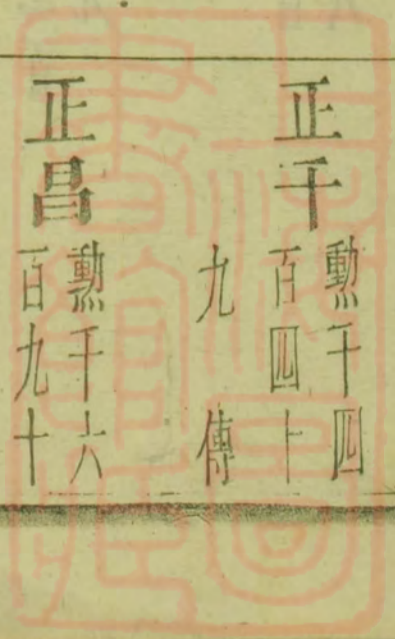 正千
勲千四
百四十
九 傳
正昌
勲千六
百九十